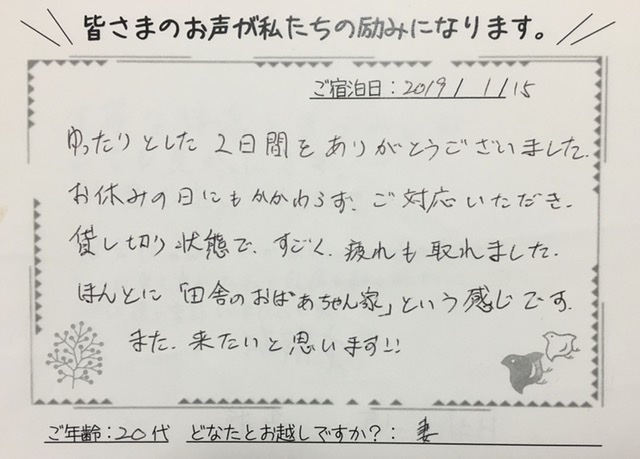 皆さまのお声が私たちの励みになります。
ご宿泊日：2019/ 1/15
ゆったりとした2日間をありがとうございました。
お休みの日にもかかわらず、ご対応いただき、
貸し切り状態で、すごく、疲れも取れました。
ほんとに「田舎のおばあちゃん家」という感じです。
また、来たいと思います!!
ご年齢：20代 どなたとお越しですか？： 妻